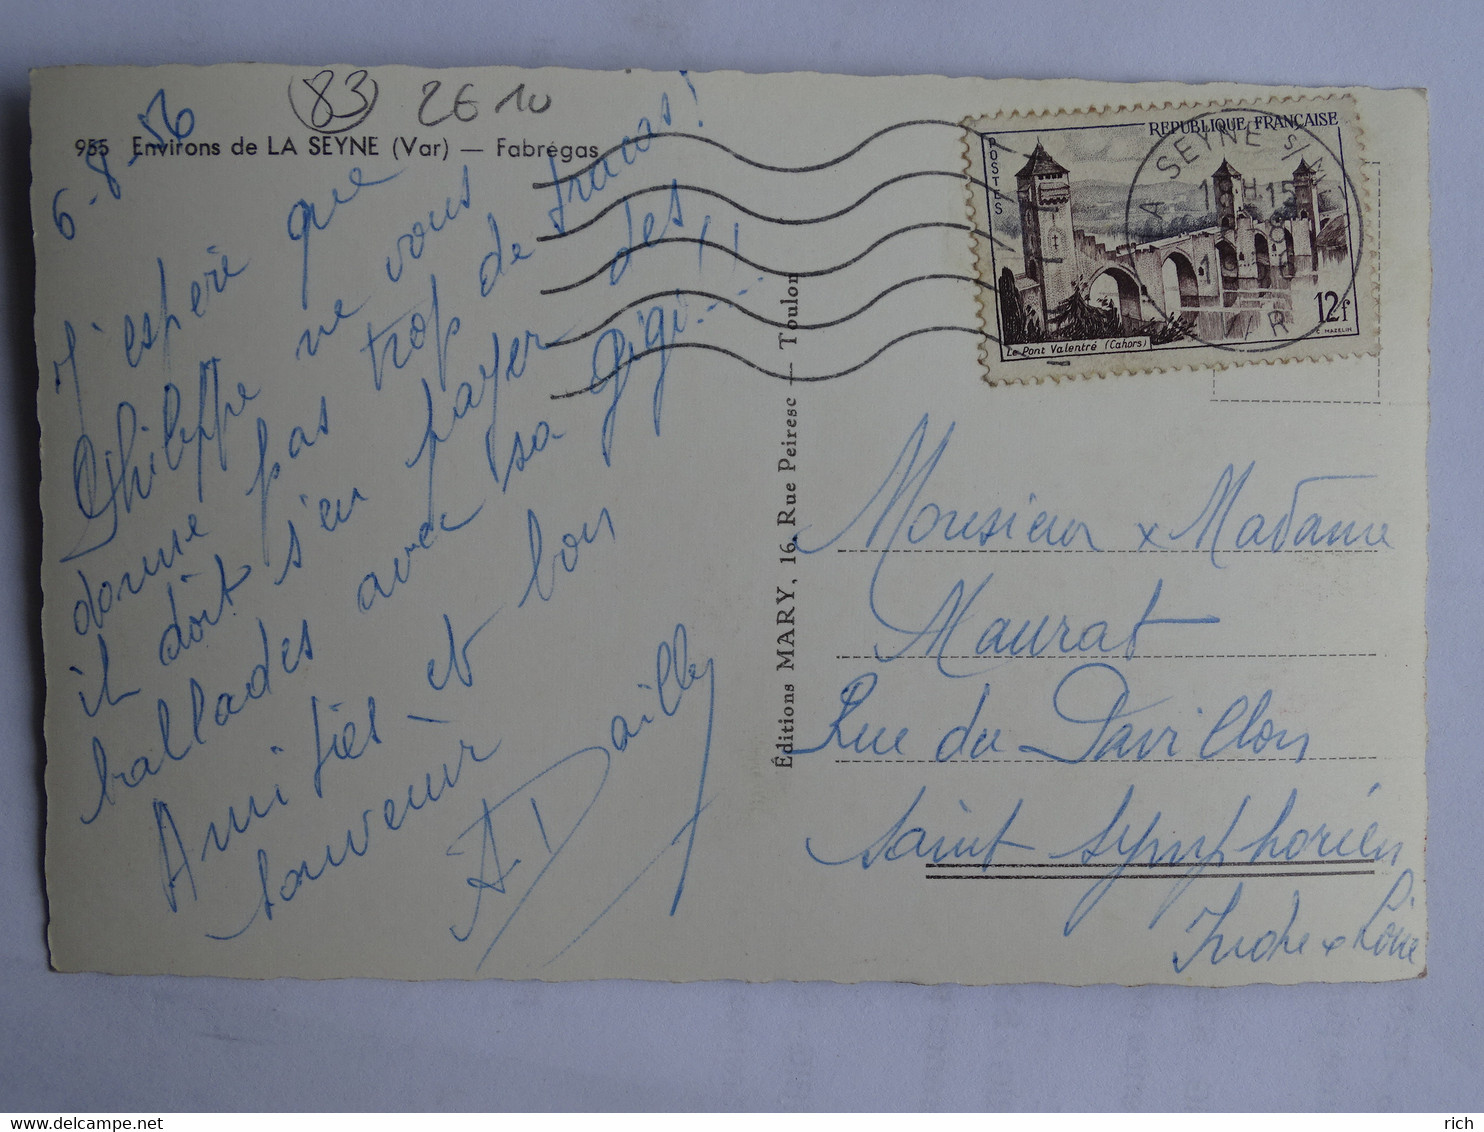 (83) 2610
6-8-56
955 Environs de LA SEYNE (Var) — Fabrégas
J'espère que
Philippe ne vous
donne pas trop de tracas!
il doit s'en payer des
ballades avec sa Gigi....!!
Amitiés et bon
souvenir
A. Dailly
Éditions MARY, 16, Rue Peiresc — Toulon
REPUBLIQUE FRANÇAISE
POSTES
12f
C. MAZELIN
Le Pont Valentré (Cahors)
LA SEYNE S/MER
18H15
VAR
Monsieur & Madame
Maurat
Rue du Pavillon
Saint Symphorien
Indre & Loire
rich